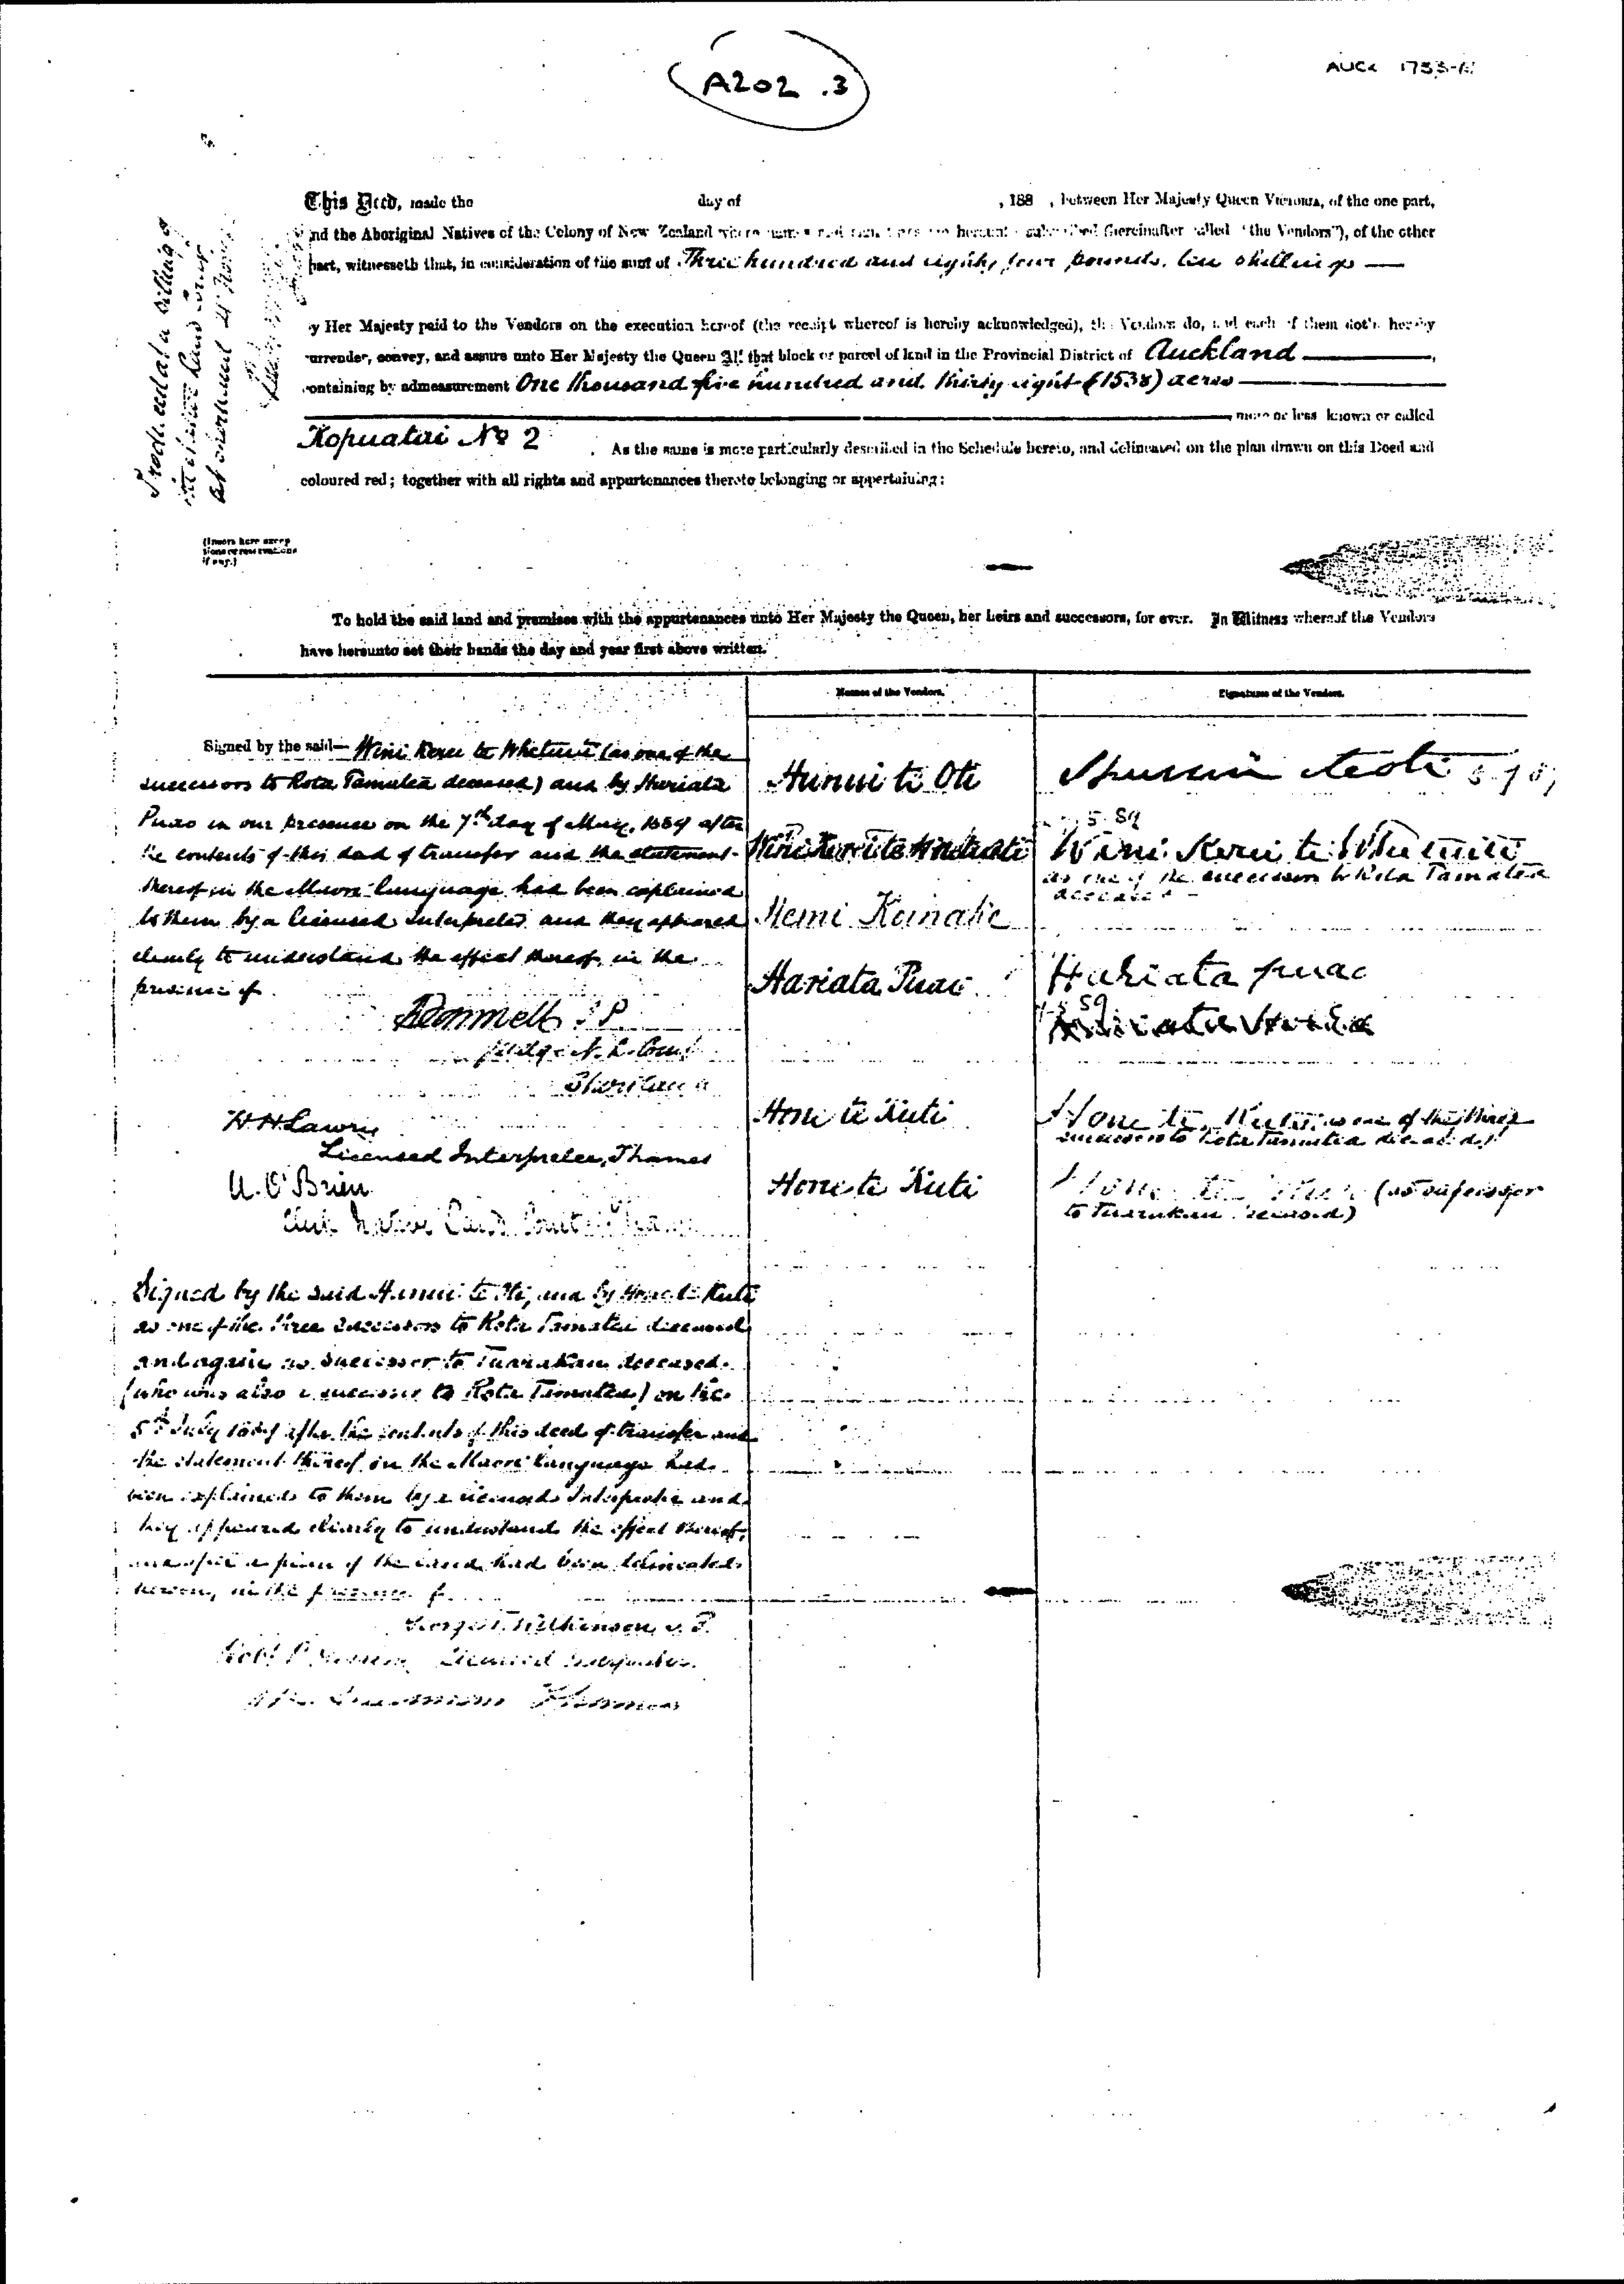 A202 .3
AUCK
This Deed, made the day of , 188 , between Her Majesty Queen Victoria, of the one part,
and the Aboriginal Natives of the Colony of New Zealand whose names and are hereunto subscribed (hereinafter called "the Vendors"), of the other
part, witnesseth that, in consideration of the sum of Three hundred and eighty four pounds, ten shillings
by Her Majesty paid to the Vendors on the execution hereof (the receipt whereof is hereby acknowledged), the Vendors do, and each of them doth hereby
surrender, convey, and assure unto Her Majesty the Queen All that block or parcel of land in the Provincial District of Auckland,
containing by admeasurement One thousand five hundred and thirty eight (1538) acres
more or less known or called
Kopuatai No 2 . As the same is more particularly described in the Schedule hereto, and delineated on the plan drawn on this Deed and
coloured red; together with all rights and appurtenances thereto belonging or appertaining:
(Insert here excep-
tions or reservations
if any.)
To hold the said land and premises with the appurtenances unto Her Majesty the Queen, her heirs and successors, for ever. In Witness whereof the Vendors
have hereunto set their hands the day and year first above written.
Names of the Vendors.
Signatures of the Vendors.
Signed by the said— Wini Kerei te Whetuiti (as one of the
successors to Rota Tamatea deceased) and by Hariata
Puao in our presence on the 7th day of May, 1889 after
the contents of this deed of transfer and the statement
thereof in the Maori language had been explained
to them by a licensed Interpreter and they appeared
clearly to understand the effect thereof, in the
presence of
Judge N. L. Court
H H Lawry
Licensed Interpreter, Thames
U. O'Brien
Clerk Native Land Court
Hunui te Oti
Wini Kerei te Whetuiti
as one of the successors to Rota Tamatea
deceased
Hemi Kainake
Hariata Puao
Hariata puao
Hone te Kuti
Hone te Kuti as one of the three
successors to Rota Tamatea deceased
Hone te Kuti
(as successor
to deceased)
Signed by the said Hunui te Oti, and by Hone te Kuti
as one of the three successors to Rota Tamatea deceased
and again as successor to deceased.
(who was also a successor to Rota Tamatea) on the
5th July 1889 after the contents of this deed of transfer and
the statement thereof in the Maori language had
been explained to them by a licensed Interpreter and
they appeared clearly to understand the effect thereof,
and after a plan of the land had been delineated
hereon, in the presence of
George T. Wilkinson J. P.
Licensed Interpreter